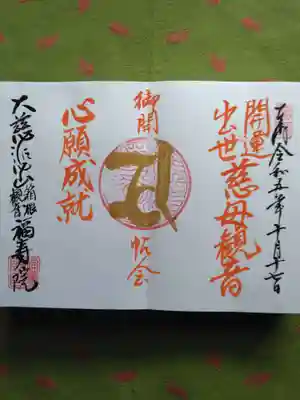 奉拝 令和五年十月十七日
開運
出世慈母観音
御開帳会
心願成就
大慈悲山 箱根観音 福寿院